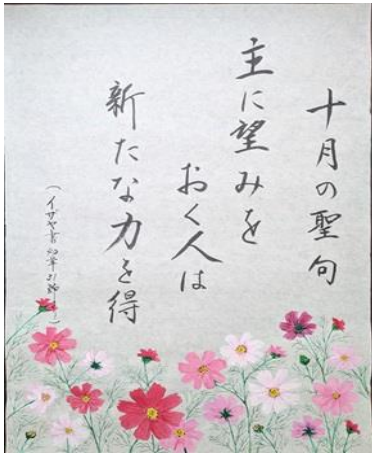 十月の聖句
主に望みを
おく人は
新たな力を得
（イザヤ書40章31節）